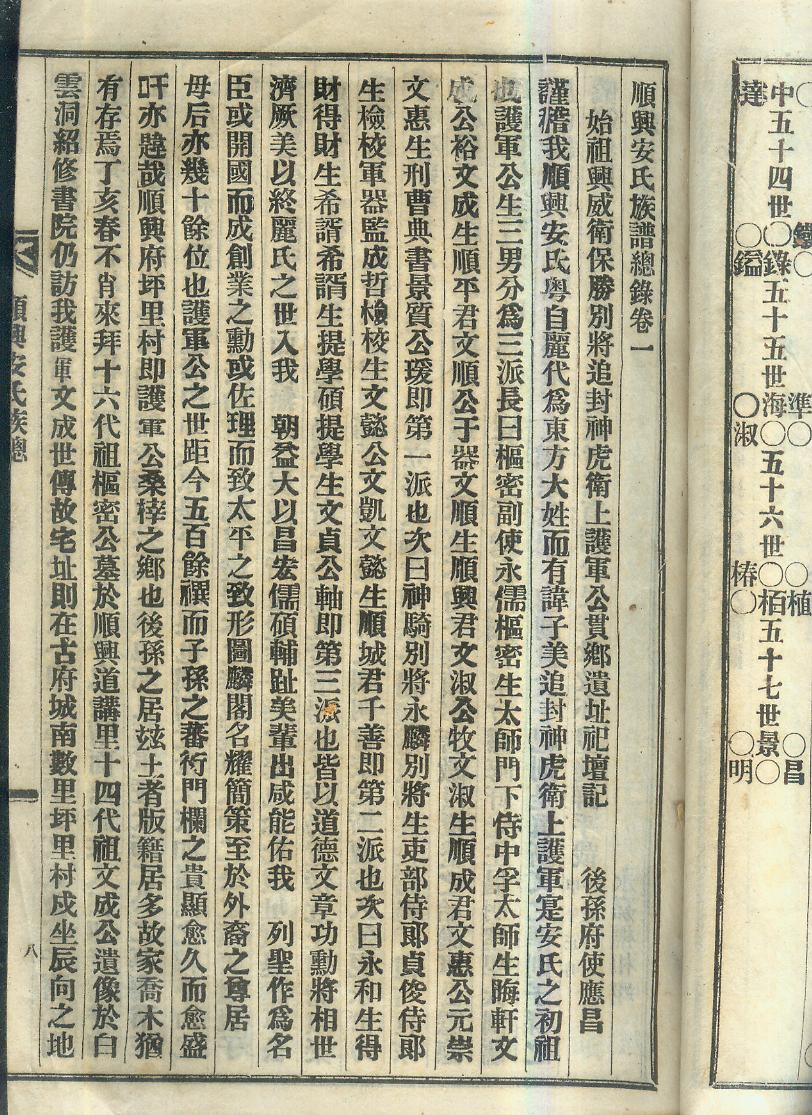 中五十四世〇錄五十五世海〇五十六世〇栢五十七世景〇
達
〇鎰
〇淑
椿〇
〇明
準〇
〇植
〇昌
順興安氏族譜總錄卷一
始祖興威衛保勝別將追封神虎衛上護軍公貫鄉遺址祀壇記 後孫府使應昌
謹稽我順興安氏粤自麗代爲東方大姓而有諱子美追封神虎衛上護軍寔安氏之初祖
也護軍公生三男分爲三派長曰樞密副使永儒樞密生太師門下侍中孚太師生晦軒文
成公裕文成生順平君文順公于器文順生順興君文淑公牧文淑生順成君文惠公元崇
文惠生刑曹典書景質公瑗即第一派也次曰神騎別將永麟別將生吏部侍郞貞俊侍郞
生檢校軍器監成哲檢校生文懿公文凱文懿生順城君千善即第二派也次曰永和生得
財得財生希諝希諝生提學碩提學生文貞公軸即第三派也皆以道德文章功勳將相世
濟厥美以終麗氏之世入我 朝益大以昌宏儒碩輔趾美輩出咸能佑我 列聖作爲名
臣或開國而成創業之勳或佐理而致太平之致形圖麟閣名耀簡策至於外裔之尊居
母后亦幾十餘位也護軍公之世距今五百餘禩而子孫之蕃衍門欄之貴顯愈久而愈盛
吁亦韙哉順興府坪里村即護軍公桑梓之鄉也後孫之居玆土者版籍居多故家喬木猶
有存焉丁亥春不肖來拜十六代祖樞密公墓於順興道講里十四代祖文成公遺像於白
雲洞紹修書院仍訪我護軍文成世傳故宅址則在古府城南數里坪里村戌坐辰向之地
順興安氏族總
八